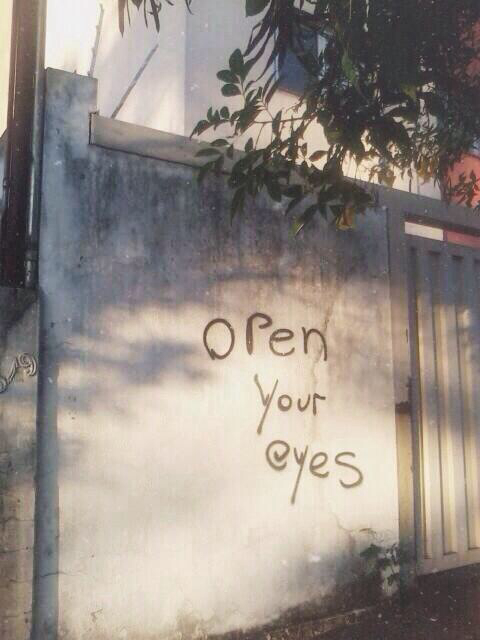 open
your
eyes